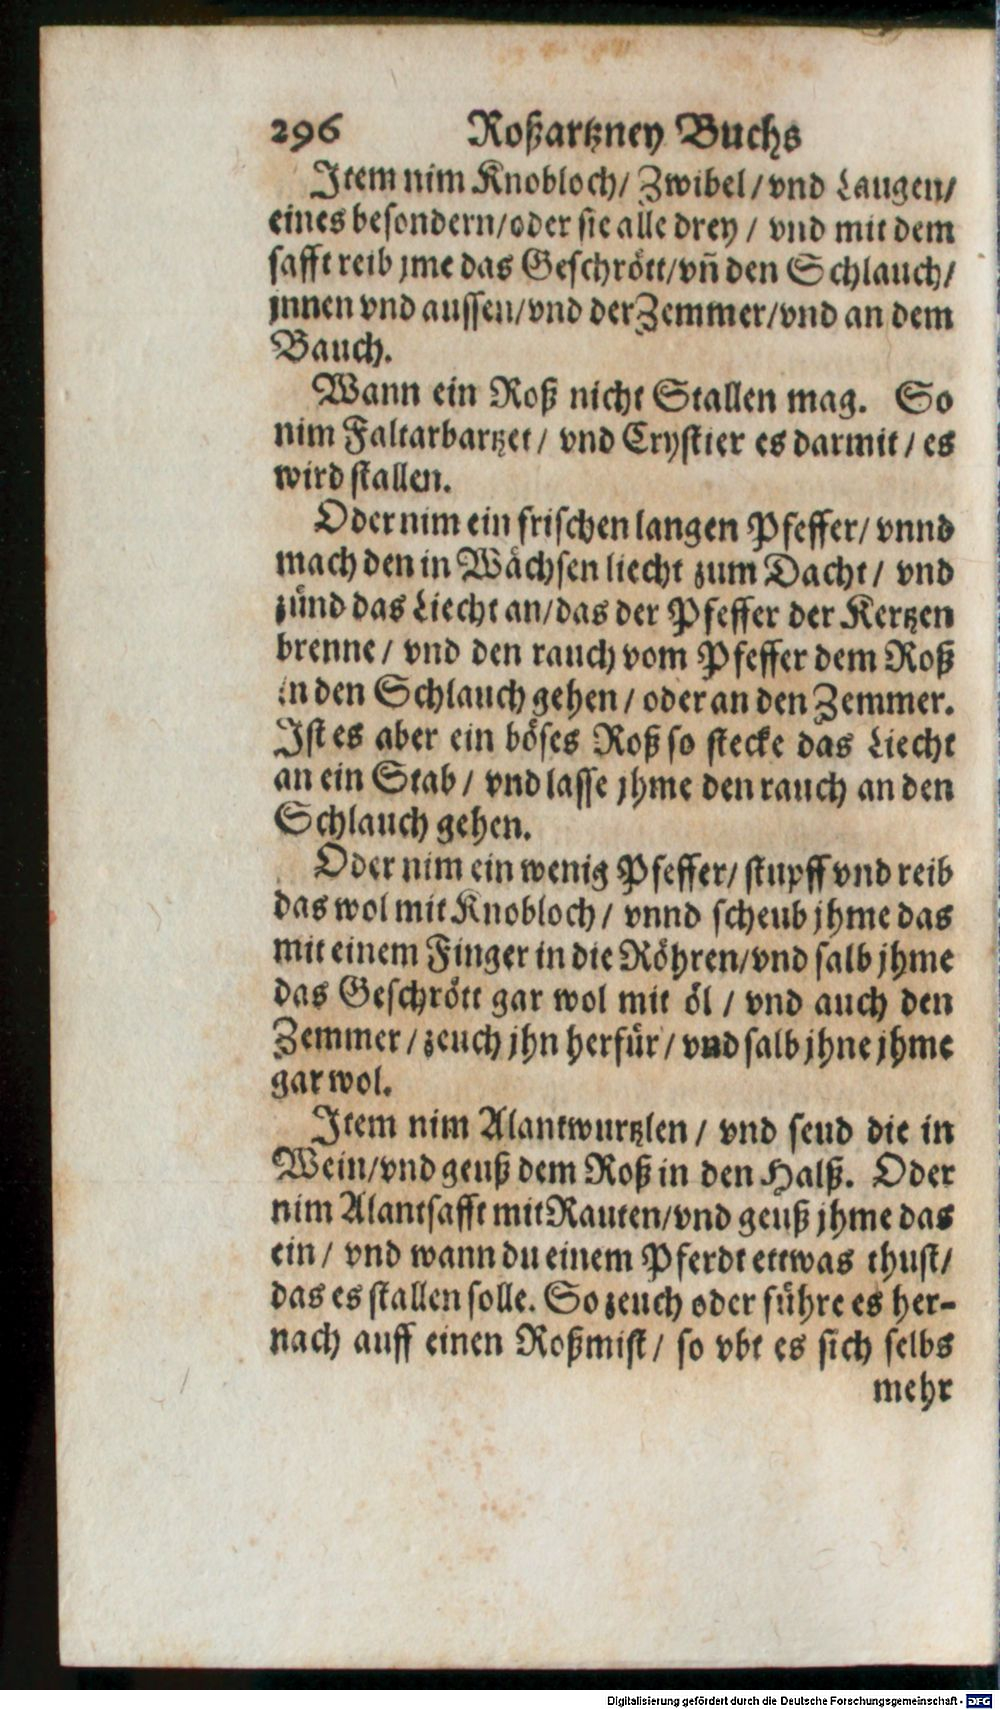 296 Roßartzney Buchs
Item nim Knobloch/ Zwibel/ vnd Laugen/
eines besondern/oder sie alle drey / vnd mit dem
safft reib jme das Geschrött/vn̄ den Schlauch/
jnnen vnd aussen/vnd der Zemmer/vnd an dem
Bauch.
Wann ein Roß nicht Stallen mag. So
nim Faltarbartzet/ vnd Crystier es darmit/ es
wird stallen.
Oder nim ein frischen langen Pfeffer/ vnnd
mach den in Wächsen liecht zum Dacht/ vnd
zünd das Liecht an/das der Pfeffer der Kertzen
brenne/ vnd den rauch vom Pfeffer dem Roß
in den Schlauch gehen/ oder an den Zemmer.
Ist es aber ein böses Roß so stecke das Liecht
an ein Stab/ vnd lasse jhme den rauch an den
Schlauch gehen.
Oder nim ein wenig Pfeffer/ stupff vnd reib
das wol mit Knobloch/ vnnd scheub jhme das
mit einem Finger in die Röhren/vnd salb jhme
das Geschrött gar wol mit öl / vnd auch den
Zemmer/ zeuch jhn herfür/ vnd salb jhne jhme
gar wol.
Item nim Alantwurtzlen/ vnd seud die in
Wein/vnd geuß dem Roß in den Halß. Oder
nim Alantsafft mit Rauten/vnd geuß jhme das
ein/ vnd wann du einem Pferdt ettwas thust/
das es stallen solle. So zeuch oder führe es her-
nach auff einen Roßmist/ so vbt es sich selbs
mehr
Digitalisierung gefördert durch die Deutsche Forschungsgemeinschaft - DFG